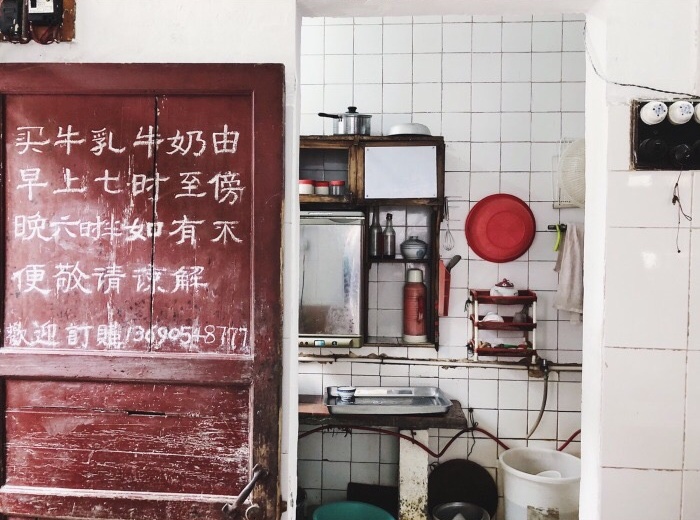 买牛乳牛奶由
早上七时至傍
晚六时半如有不
便敬请谅解
歡迎訂購13690548777